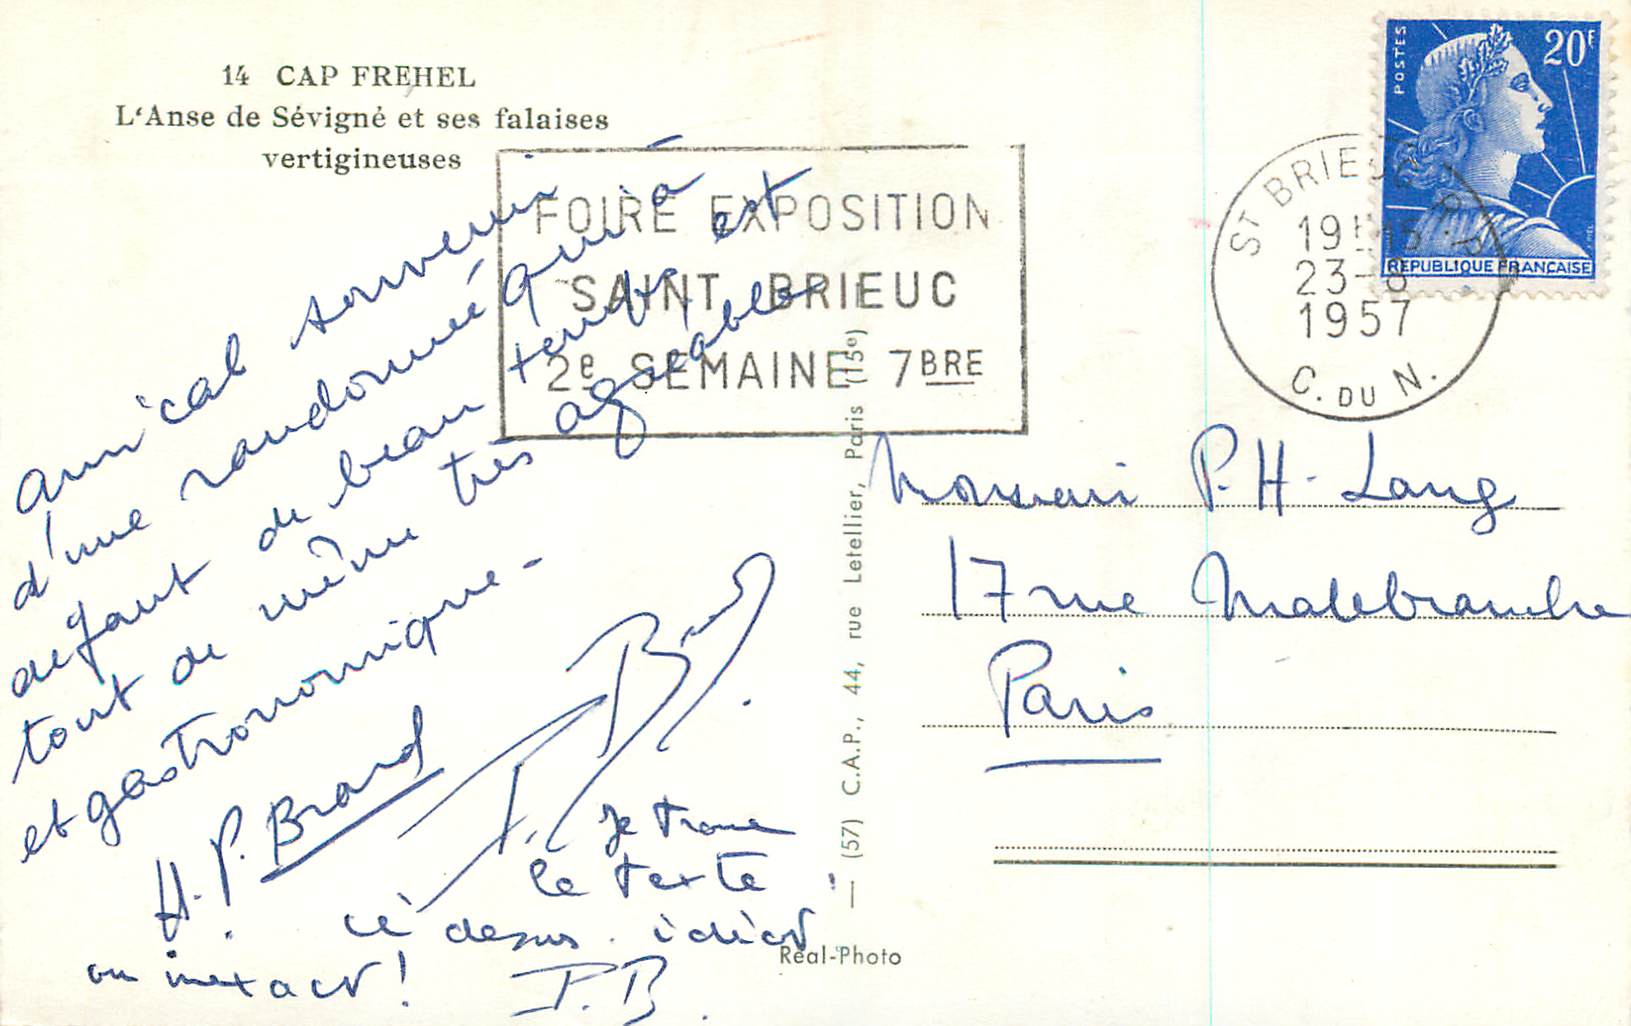 14 CAP FREHEL
L'Anse de Sévigné et ses falaises
vertigineuses
POSTES
20F
REPUBLIQUE FRANÇAISE
ST BRIEUC R.P.
19H15
23-8
1957
C. DU N.
FOIRE EXPOSITION
SAINT BRIEUC
2e SEMAINE 7BRE
amical souvenir
d'une randonnée qui à
défaut de beau temps est
tout de même très agréable
et gastronomique -
H.P. Brard
Je trouve
le texte
ci dessus idiot
ou inexact !
P.B.
Monsieur P.H. Lang
17 rue Malebranche
Paris
— (57) C.A.P., 44, rue Letellier, Paris (15e)
Réal-Photo